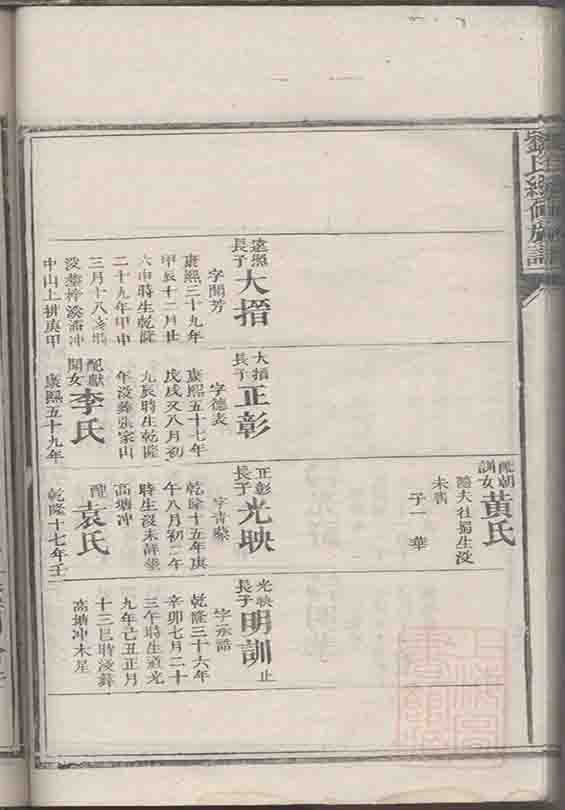 劉氏續修族譜
配朝訓女
黃氏
隨夫社蜀生沒
未書
子一 華
遠照長子
大搢
字開芳
康熙三十九年
甲辰十二月廿
六申時生乾隆
二十九年甲申
三月十八
中山上排庚甲
大搢長子
正彰
字德表
康熙五十七年
戊戌又八月初
九辰時生乾隆
年沒葬張家山
配獻開女
李氏
康熙五十九年
正彰長子
光映
字青藜
乾隆十五年庚
午八月初二午
時生沒未詳葬
高塘冲
配
袁氏
乾隆十七年壬
光映長子
明訓
止
字承誥
乾隆三十六年
辛卯七月二十
三午時生道光
九年己丑正月
十三巳時沒葬
高塘冲木星